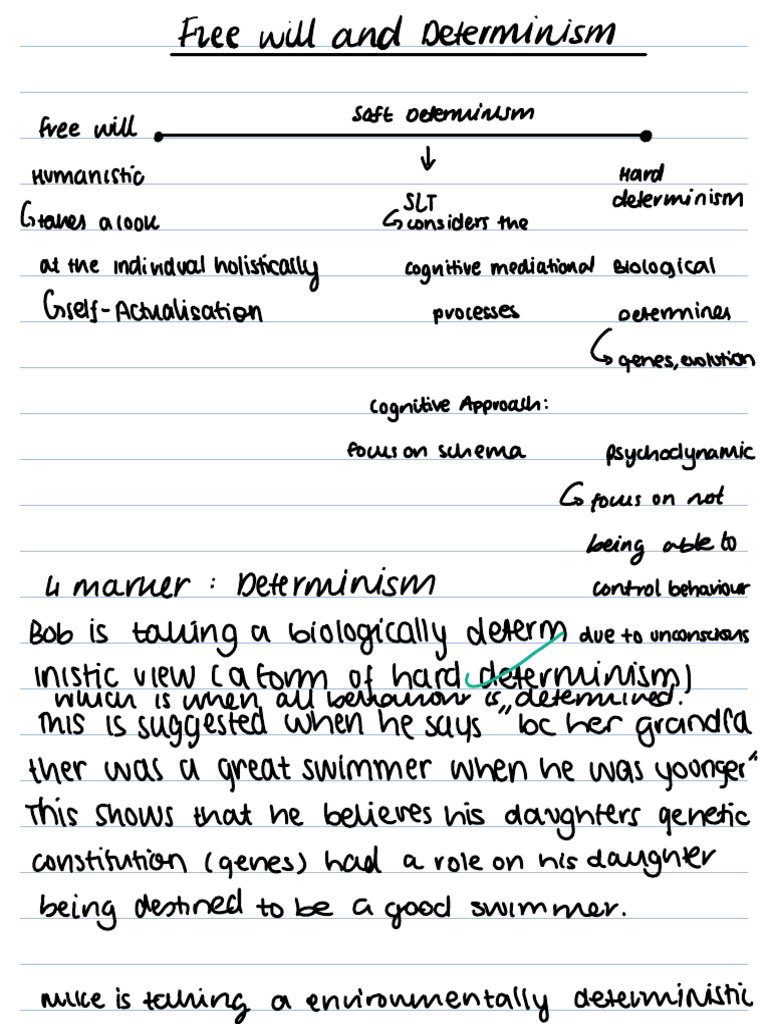 Free will and Determinism
Soft Determinism
Free will
Humanistic
Hard
determinism
↳takes a look
SLT
↳considers the
at the individual holistically
cognitive mediational
Biological
↳self-Actualisation
processes
Determines
↳genes, evolution
Cognitive Approach:
focus on schema
psychodynamic
↳focus on not
being able to
control behaviour
due to unconscious
4 marker : Determinism
Bob is taking a biologically determ
inistic view (a form of hard determinism)
which is when all behaviour is determined.
This is suggested when he says "bc her grandfa
ther was a great swimmer when he was younger"
This shows that he believes his daughters genetic
constitution (genes) had a role on his daughter
being destined to be a good swimmer.
Mike is taking a environmentally deterministic